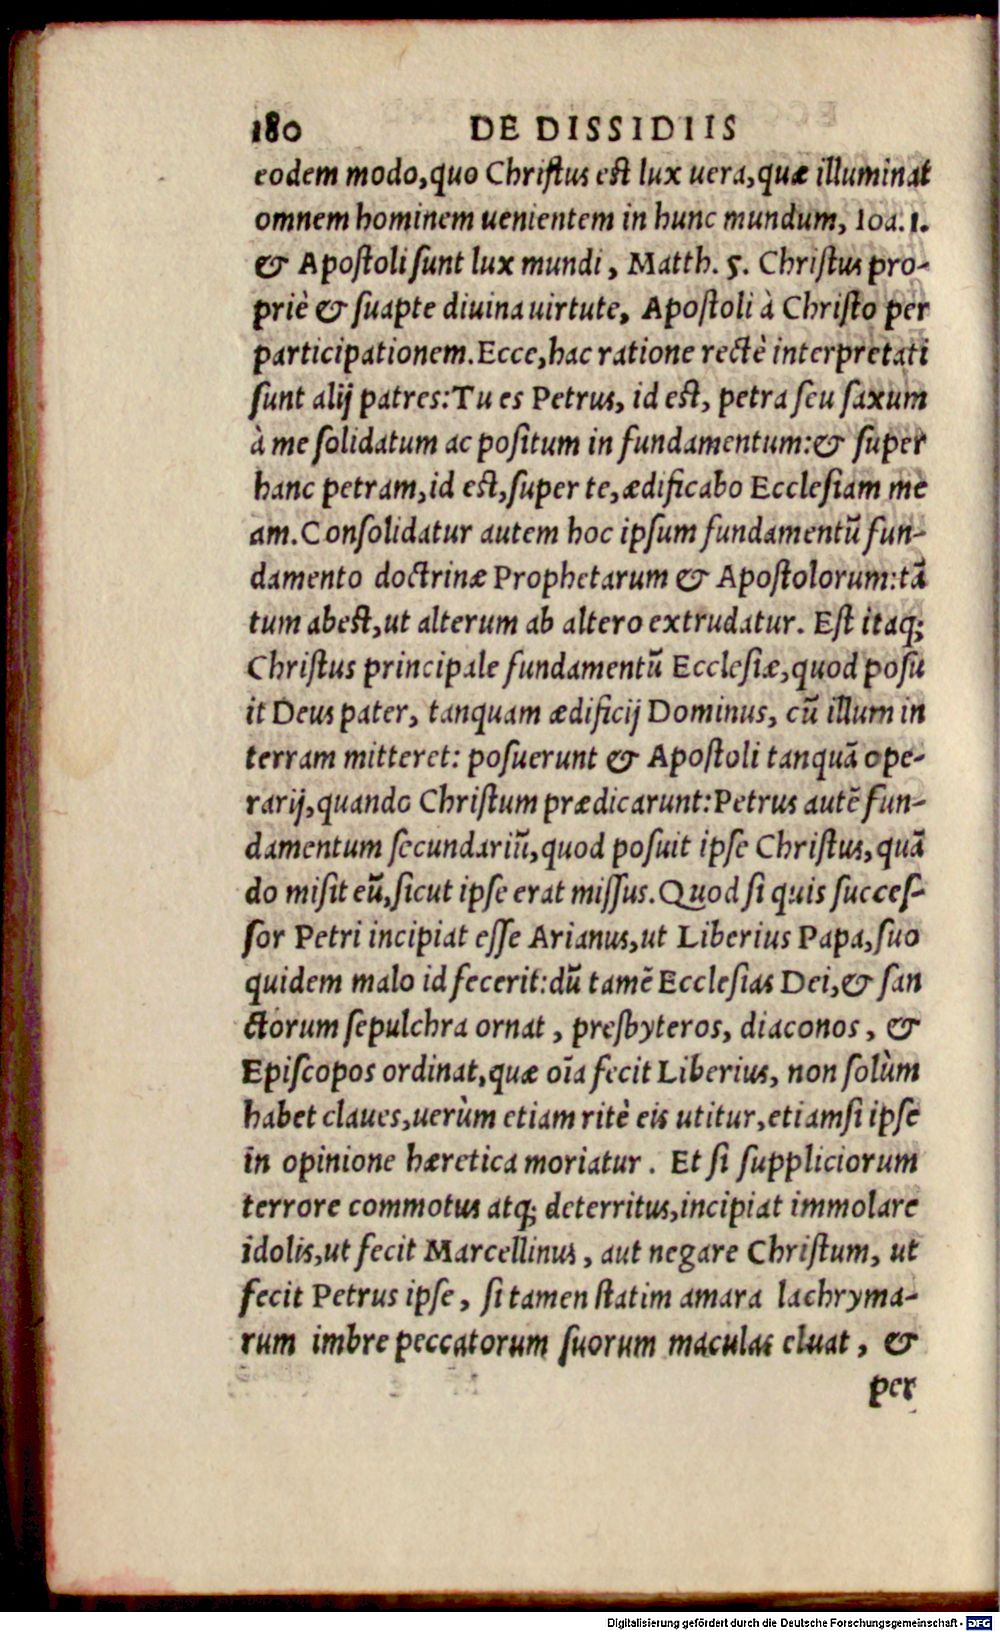 180 DE DISSIDIIS
eodem modo, quo Chriſtus eſt lux uera, quæ illuminat
omnem hominem uenientem in hunc mundum, Ioa. 1.
& Apoſtoli ſunt lux mundi, Matth. 5. Chriſtus pro-
priè & ſuapte diuina uirtute, Apoſtoli à Chriſto per
participationem. Ecce, hac ratione rectè interpretati
ſunt alij patres: Tu es Petrus, id eſt, petra ſeu ſaxum
à me ſolidatum ac poſitum in fundamentum: & ſuper
hanc petram, id eſt, ſuper te, ædificabo Eccleſiam me
am. Conſolidatur autem hoc ipſum fundamentũ fun-
damento doctrinæ Prophetarum & Apoſtolorum: tã
tum abeſt, ut alterum ab altero extrudatur. Eſt itaq;
Chriſtus principale fundamentũ Eccleſiæ, quod poſu
it Deus pater, tanquam ædificij Dominus, cũ illum in
terram mitteret: poſuerunt & Apoſtoli tanquã ope-
rarij, quando Chriſtum prædicarunt: Petrus autẽ fun-
damentum ſecundariũ, quod poſuit ipſe Chriſtus, quã
do miſit eũ, ſicut ipſe erat miſſus. Quod ſi quis succeſ-
ſor Petri incipiat eſſe Arianus, ut Liberius Papa, ſuo
quidem malo id fecerit: dũ tamẽ Eccleſias Dei, & ſan
ctorum ſepulchra ornat, presbyteros, diaconos, &
Epiſcopos ordinat, quæ oĩa fecit Liberius, non ſolùm
habet claues, uerùm etiam ritè eis utitur, etiamſi ipſe
in opinione hæretica moriatur. Et ſi ſuppliciorum
terrore commotus atq; deterritus, incipiat immolare
idolis, ut fecit Marcellinus, aut negare Chriſtum, ut
fecit Petrus ipſe, ſi tamen ſtatim amara lachryma-
rum imbre peccatorum ſuorum maculas eluat, &
per
Digitalisierung gefördert durch die Deutsche Forschungsgemeinschaft - DFG